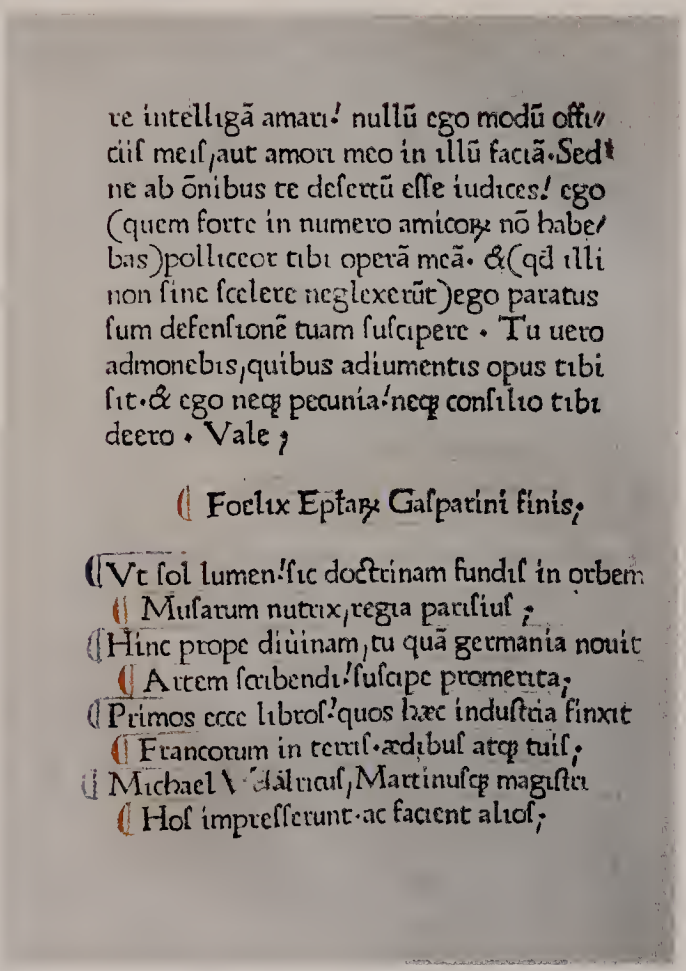 re intelligā amari! nullū ego modū offi〃
ciiſ meiſ,aut amori meo in illū faciā.Sed
ne ab ōnibus te deſertū eſſe iudices! ego
(quem forte in numero amicoꝝ nō habe/
bas)polliceor tibi operā meā. &(qđ illi
non ſine ſcelere neglexerūt)ego paratus
ſum defenſionē tuam ſuſcipere . Tu uero
admonebis,quibus adiumentis opus tibi
ſit.& ego neqꝫ pecunia!neqꝫ conſilio tibi
deero . Vale ;
Foelix Epłaꝝ Gaſparini finis;
Vt ſol lumen!ſic doctrinam fundiſ in orbem
Muſarum nutrix,regia pariſiuſ ;
Hinc prope diuinam,tu quā germania nouit
Artem ſcribendi!ſuſcipe promerita;
Primos ecce libroſ!quos hæc induſtria finxit
Francorum in terriſ.ædibuſ atqꝫ tuiſ;
Michael Martinuſqꝫ magiſtri
Hoſ impreſſerunt.ac facient alioſ;